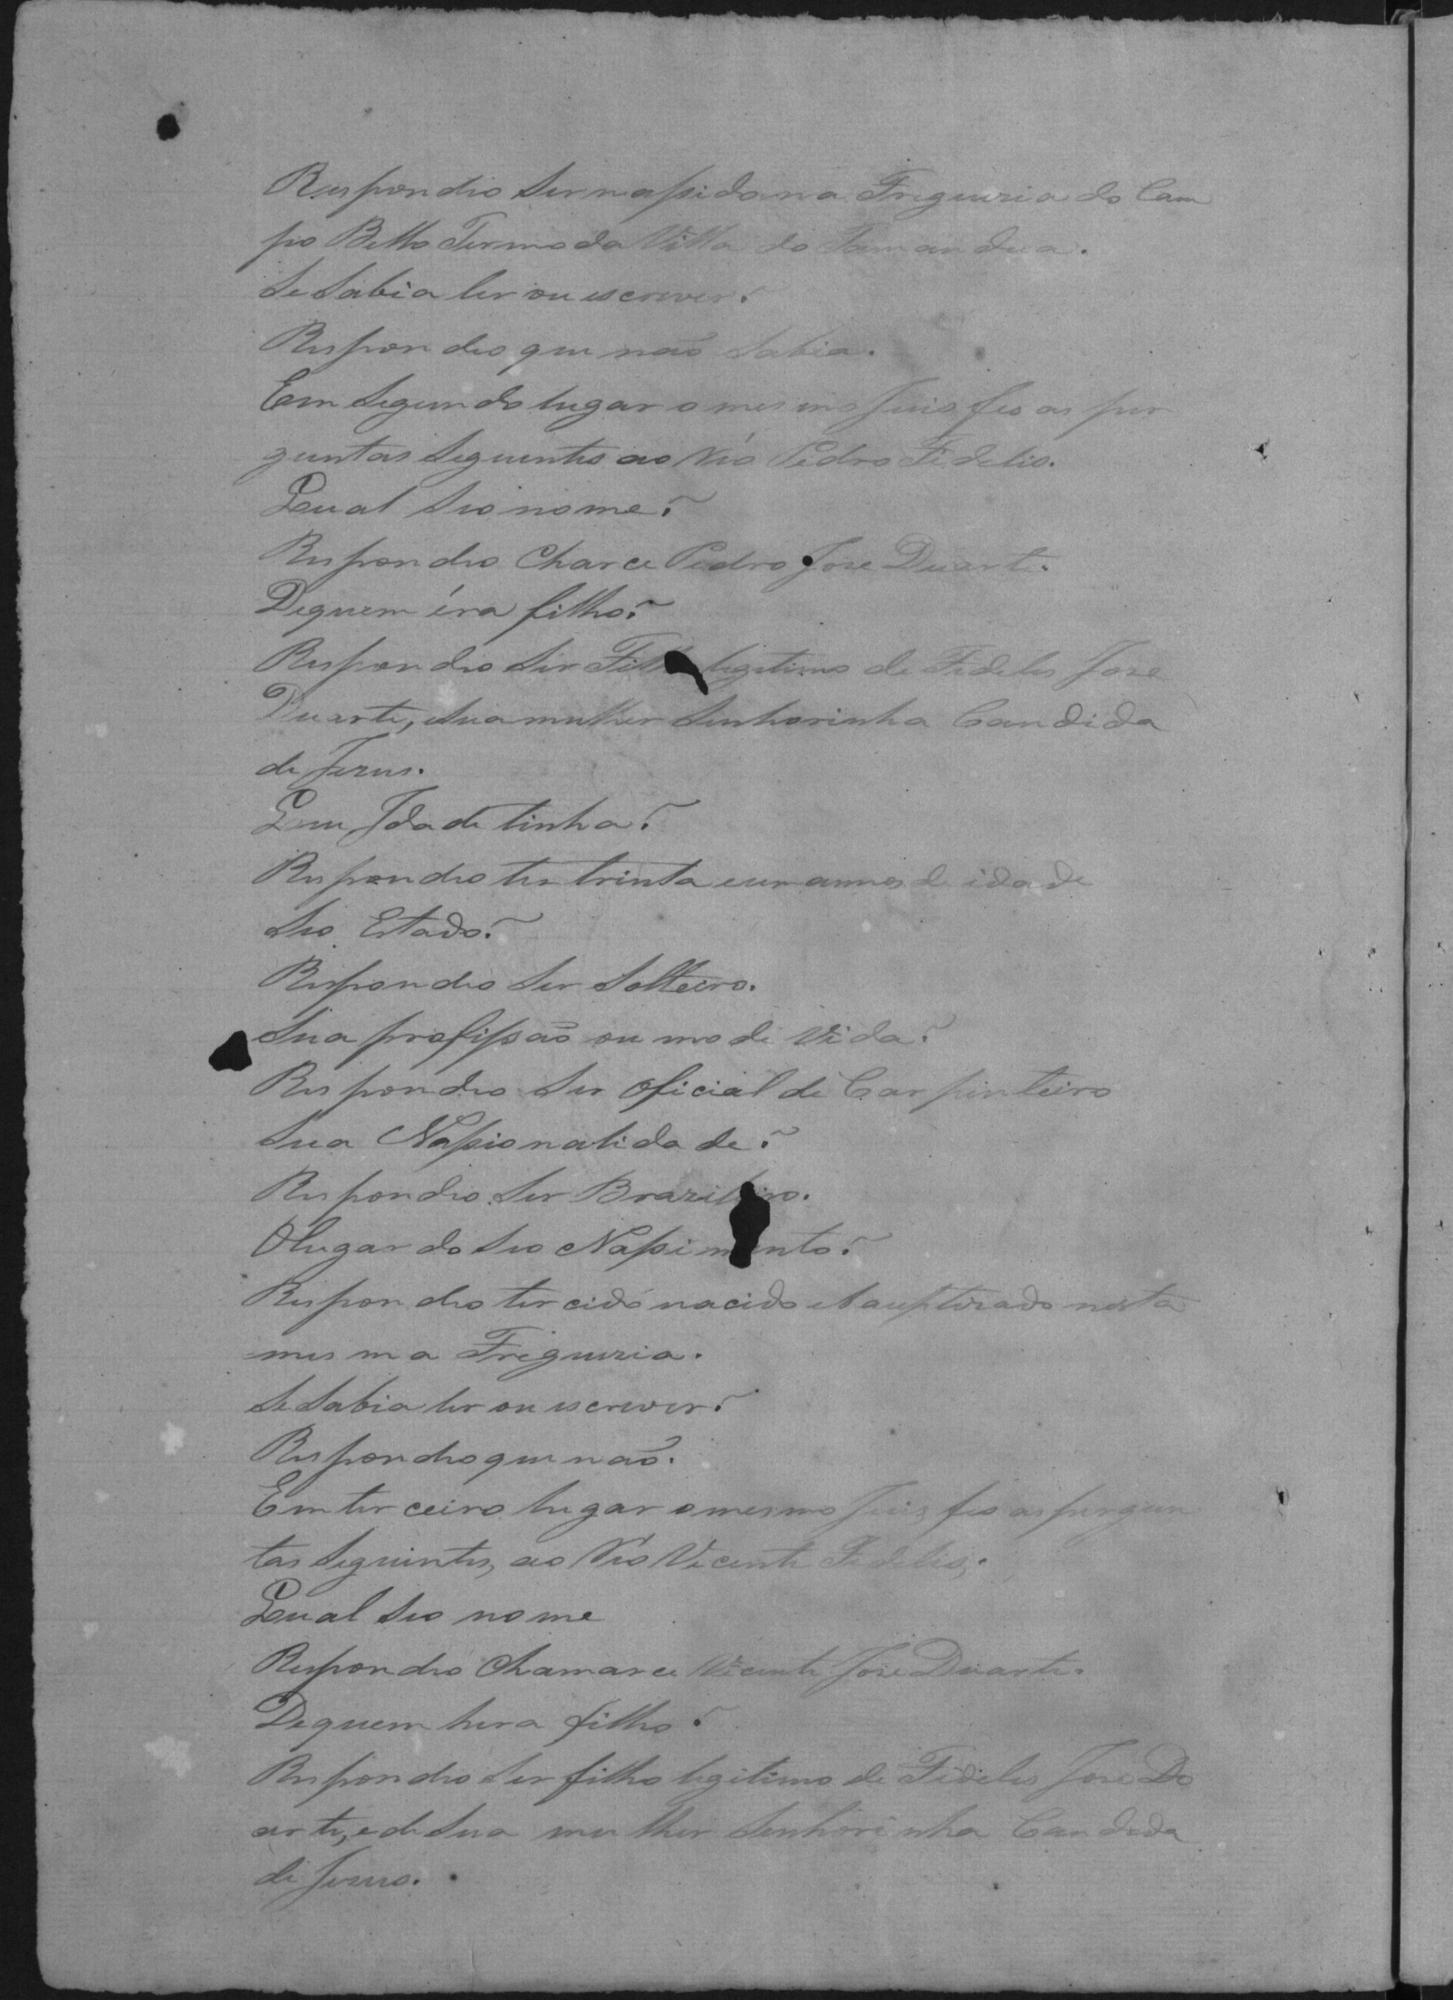 Respondio Ser nassido na Freguezia do Cam
po Bello Termo da Villa do Tamandua.
Se Sabia ler ou escrever?
Respondeo que não Sabia.
Em Segundo lugar o mesmo Juis feo as per
guntas Seguintes ao Réo Pedro Fidelis.
Qual Seo nome?
Respondeo Charce Pedro Jose Duarte.
Dequem éra filho?
Respondeo Ser Filho legitimo de Fidelis Jose
Duarte, e Sua mulher Senhorinha Candida
de Jezus.
Que Idade tinha?
Respondeo ter trinta e um annos de idade
Seo Estado?
Respondeo Ser Solteiro.
Sua profissão ou modi Vida?
Respondeo Ser Oficial de Carpinteiro
Sua Nassionalidade?
Respondeo Ser Brazileiro.
O lugar do Seo Nassimento?
Respondeo ter cido nacido e bauptizado nesta
mesma Freguezia.
Se Sabia ler ou escrever?
Respondeo que não.
Em terceiro lugar o mesmo Juis feo as pergun
tas Seguintes, ao Réo Vicente Fidelis,.
Qual Seo nome
Respondeo Chamarce Vicente Jose Duarte.
Dequem hera filho?
Respondeo Ser filho legitimo de Fidelis Jose Do
arte, e de Sua mulher Senhorinha Candida
de Jezus.